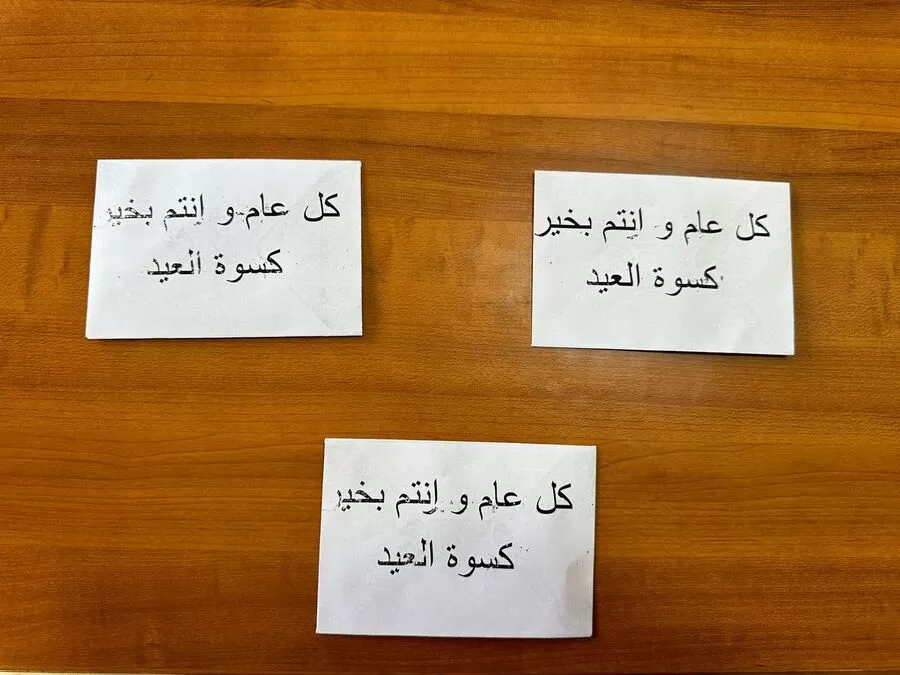 كل عام و إنتم بخير
كسوة العيد
كل عام و إنتم بخير
كسوة العيد
كل عام و إنتم بخير
كسوة العيد